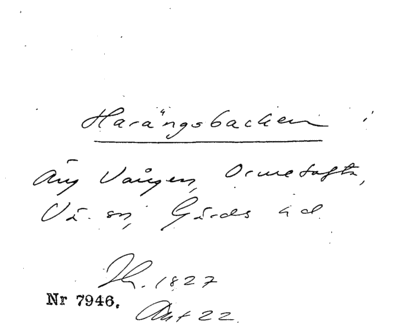 Harängsbacken
Äng Vången, Ormatofta,
Vä sn, Gärds hd
Th. 1827
Nr 7946.
Akt 22.